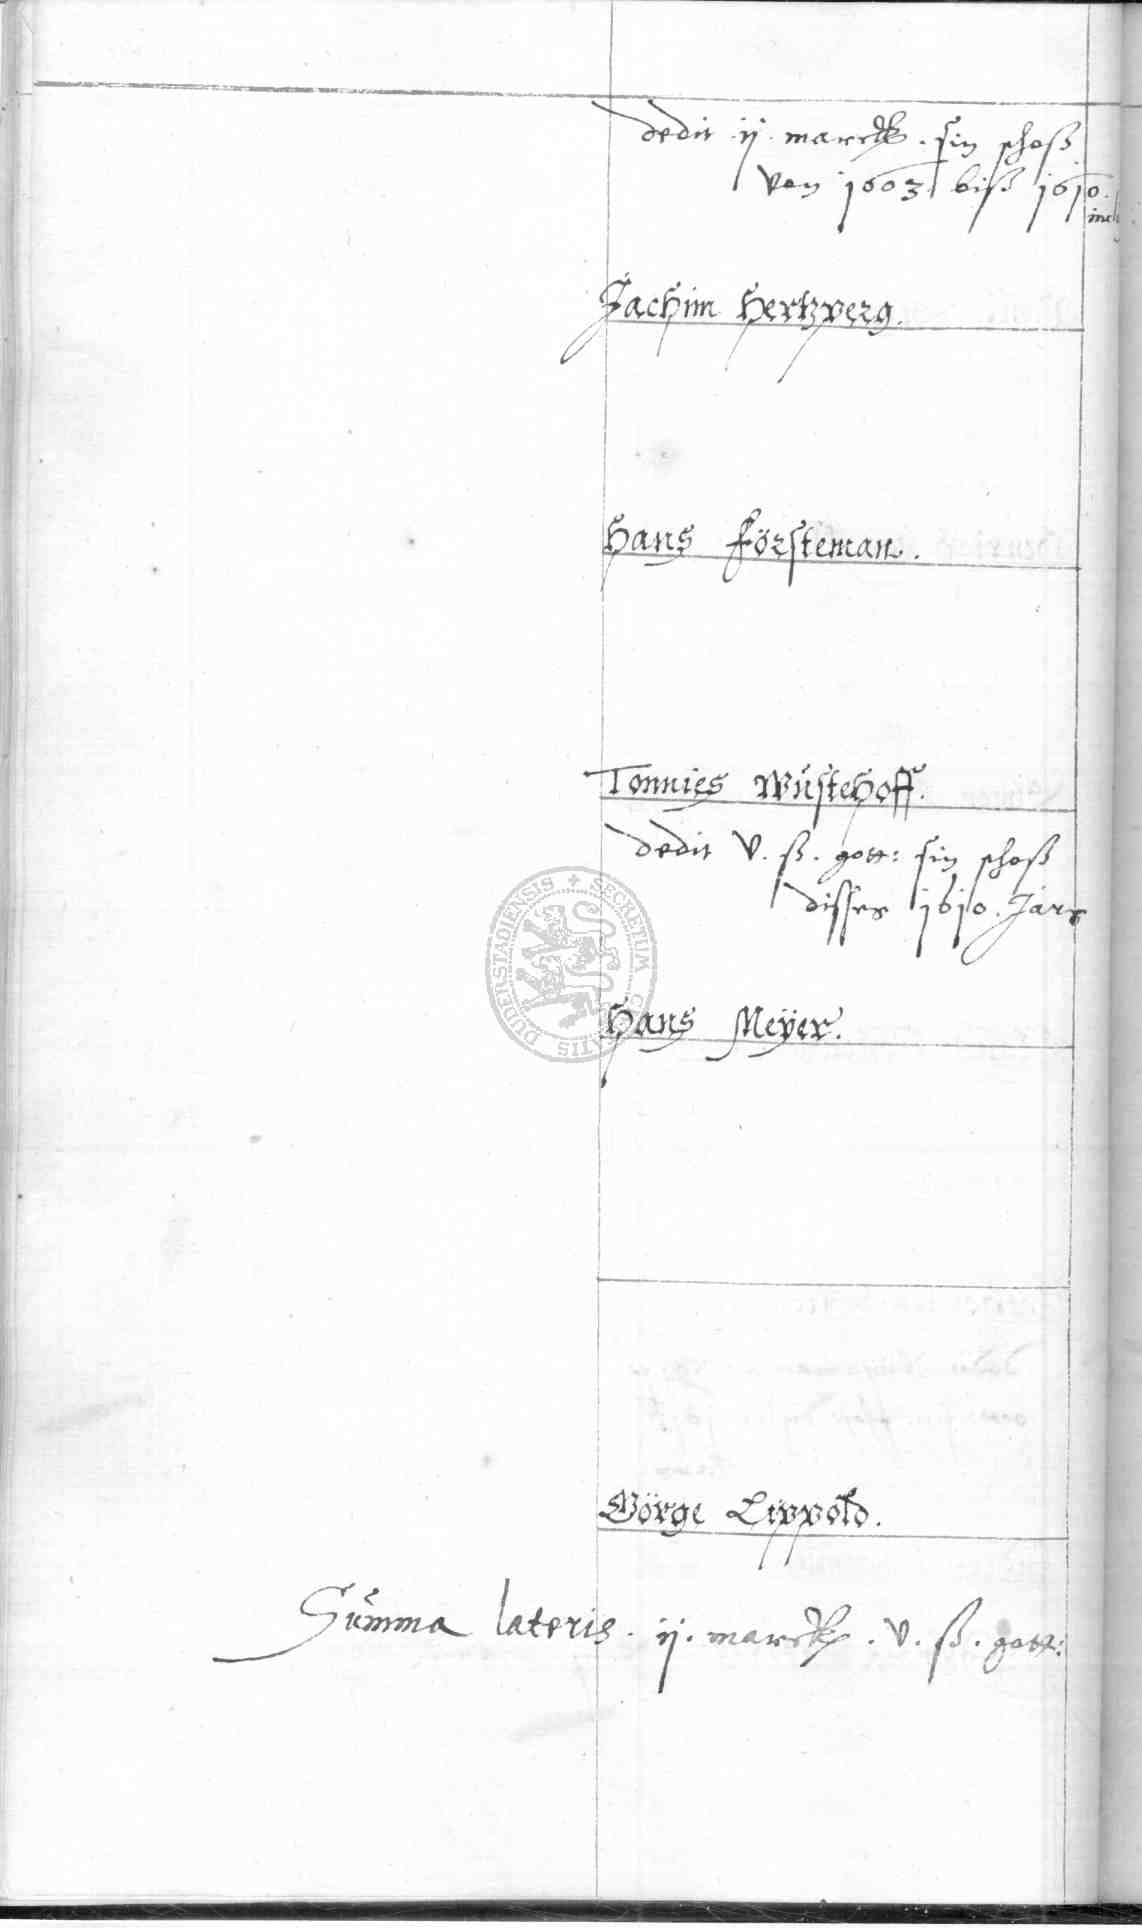 dedit ij marck. sin schoß
von 1603 biß 1610.
incl
Jachim Hertzverg.
Hans Försteman.
Tonnies Wüstehoff.
dedit v. ß. gott: sin schoß
disses 1610. Jars
DUDERSTADIENSIS + SECRETUM CIVITATIS
Hans Meÿer.
Görge Lippold.
Summa lateris. ij. marck. v. ß. gott: